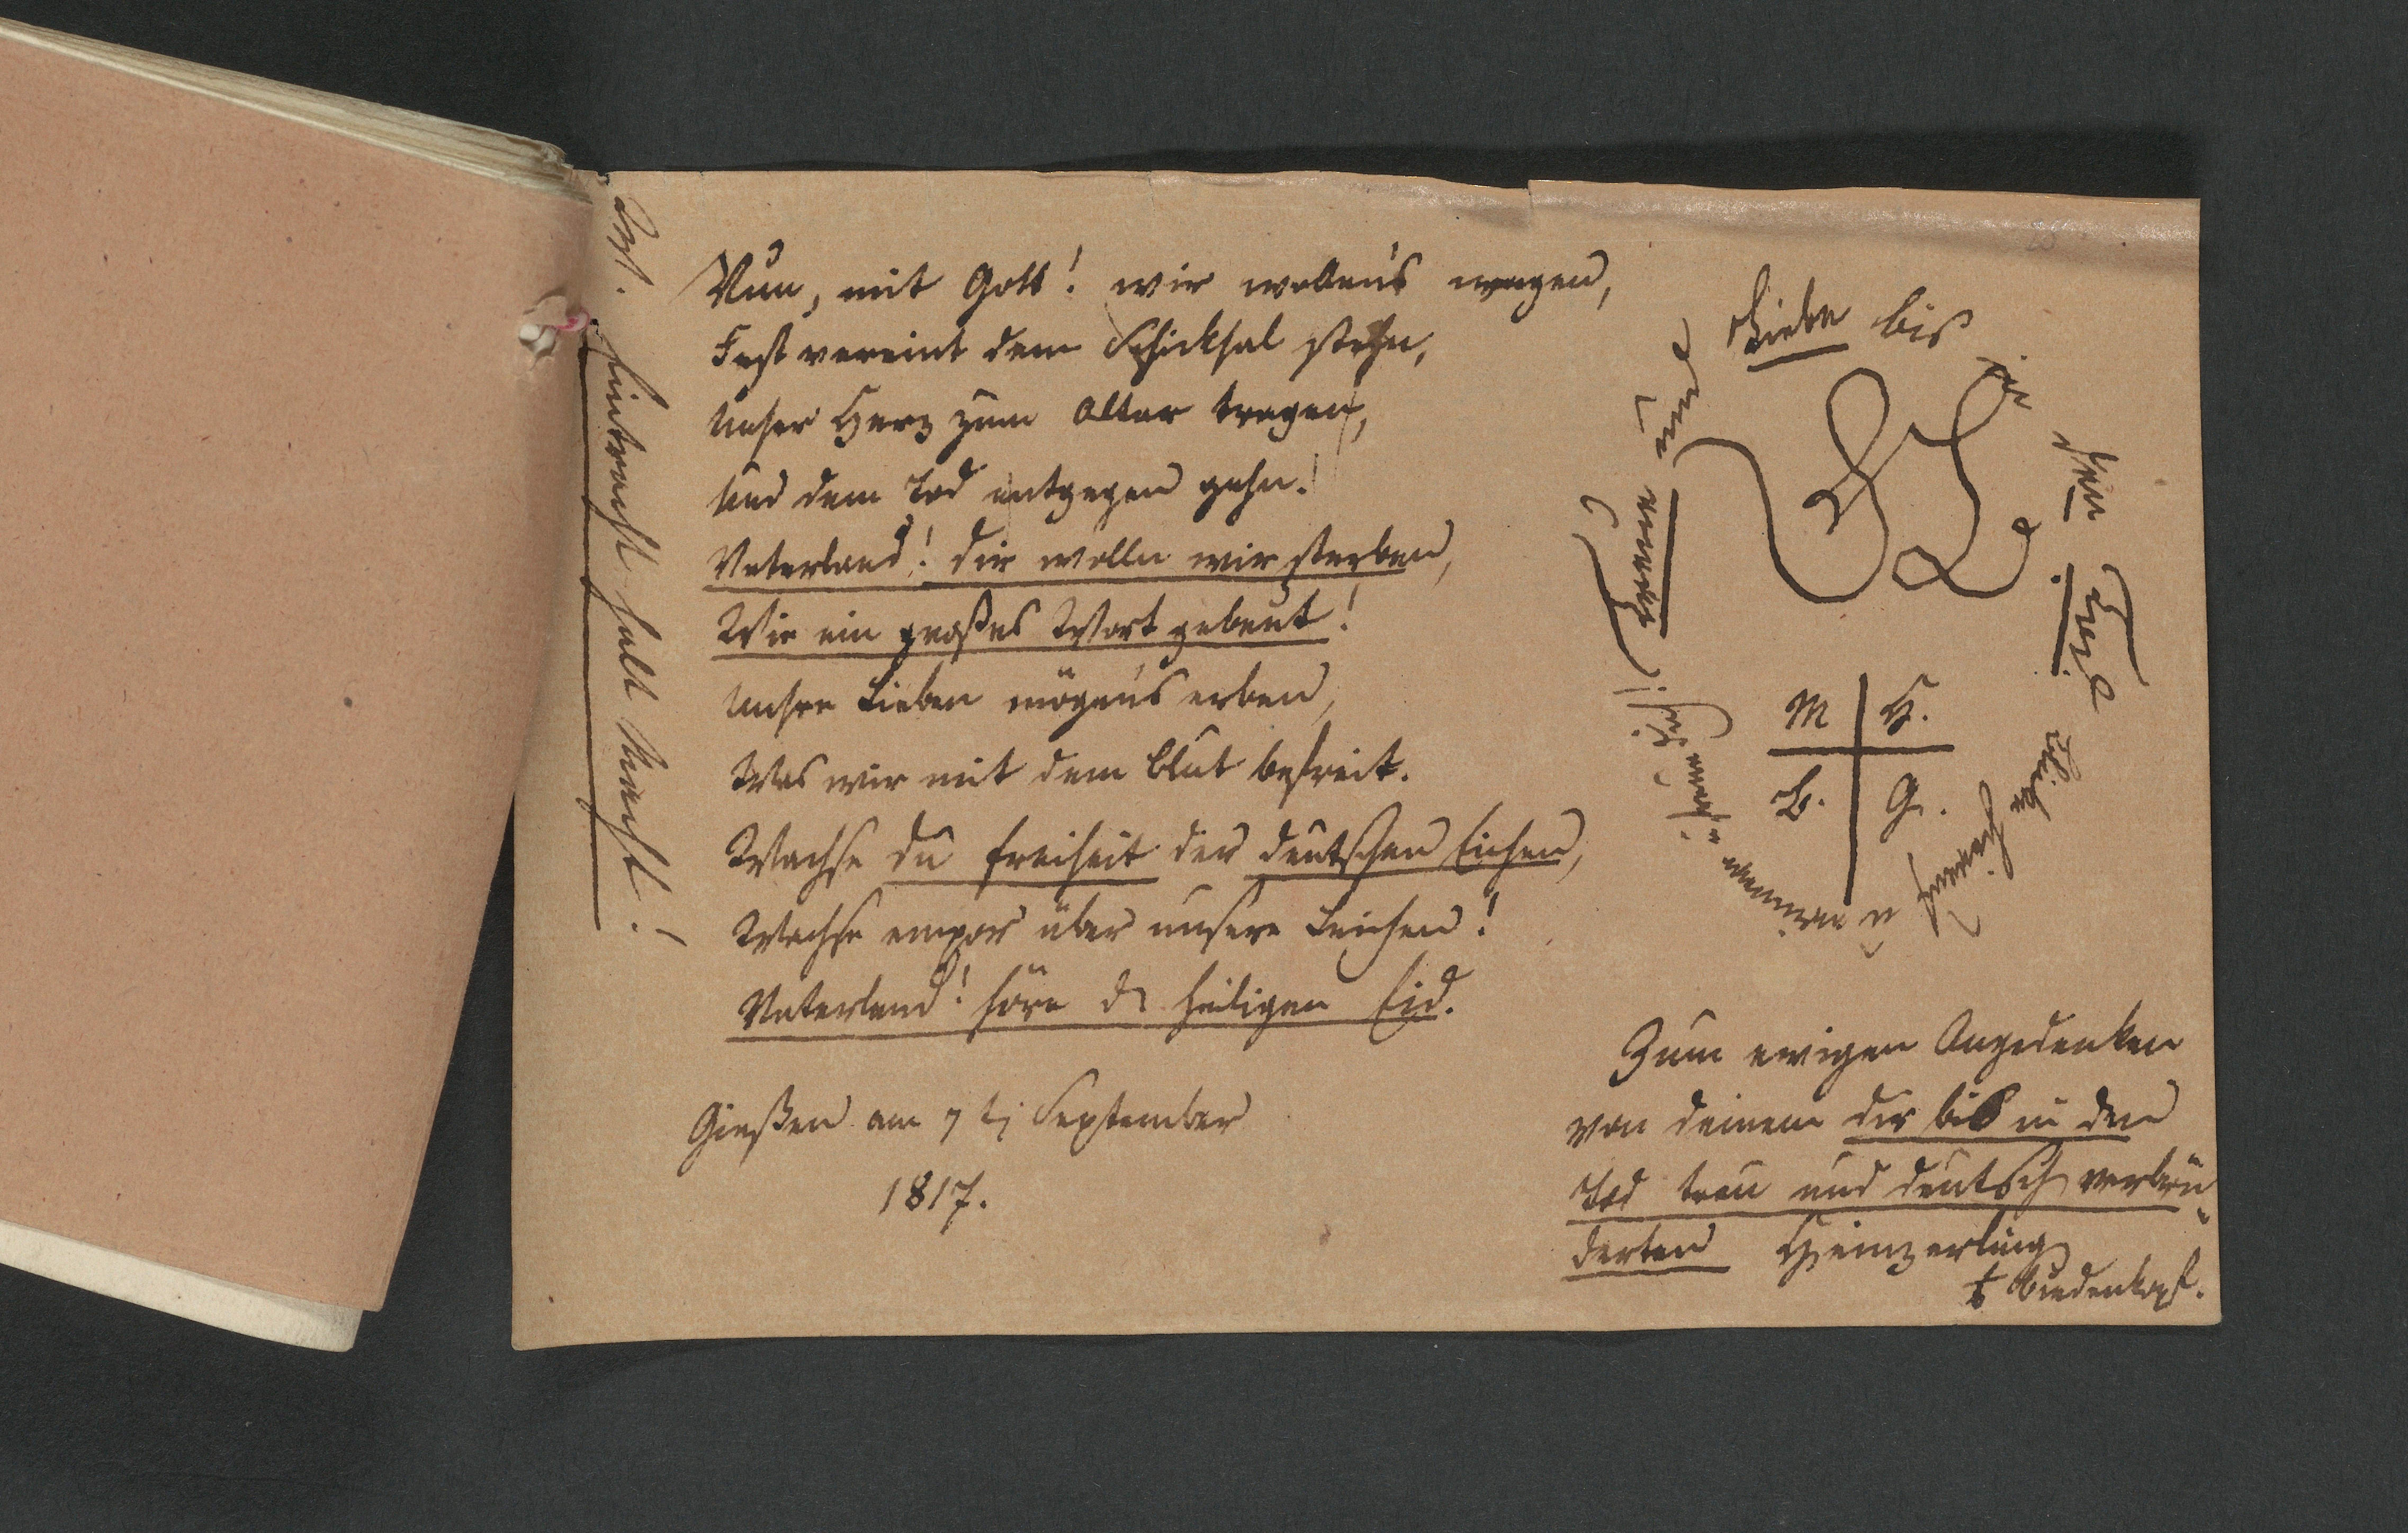 Symb. Eintracht hält Macht!
Nun, mit Gott! wir wollens wagen,
Fest vereint dem Schicksal stehn,
Unser Herz zum Altar tragen,
Und dem Tod entgegen gehn!
Vaterland! dir wolln wir sterben,
Wie ein großes Wort gebeut!
Unsre Lieben mögens erben,
Was wir mit dem Blut befreit.
Wachse du Freiheit der deutschen Eichen,
Wachse empor über unsere Leichen!
Vaterland! höre d heiligen Eid.
Gießen am 7 t September
1817.
Liebe bis
M H.
B. G.
Zum ewigen Angedenken
von deinem dir bis in den
Tod treu und deutsch verbrü-
derten Heinzerling
Biedenkopf.